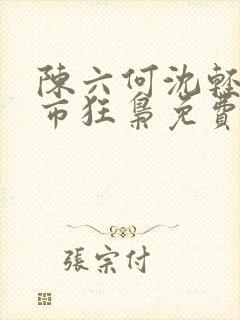 陳六何沈輕
市狂梟免費
張宗付